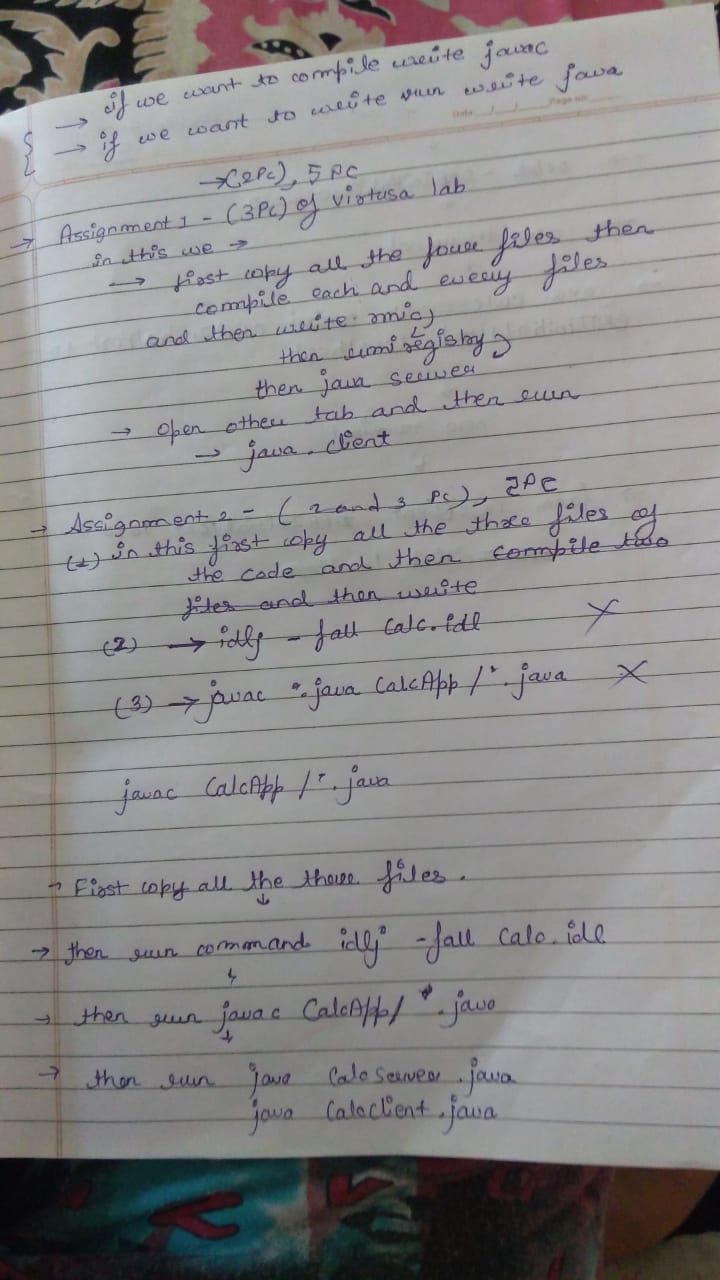 → if we want to compile write javac
→ if we want to write run write java
Date / / Page no
→(2PC), 5 PC
→ Assignment 1 - (3PC) of Virtusa lab
in this we →
→ first copy all the four files then
compile each and every files
and then write rmic,
then rmiregistry
then java server
→ open other tab and then run
→ java . client
→ Assignment 2 - ( 2 and 3 PC),
(1) in this first copy all the three files of
the code and then compile two
files and then write
(2) → idlj - fall Calc.idl X
(3) → javac *.java CalcApp /*. java X
javac CalcApp /*. java
→ First copy all the three files .
↓
→ then run command idlj -fall Calc.idl
↓
→ then run javac CalcApp/ *. java
↓
→ then run java CalcServer .java
java Calcclient.java